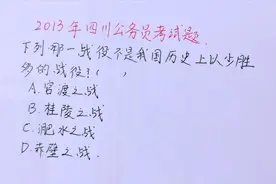 2013年四川公务员考试题.
下列哪一战役不是我国历史上以少胜
多的战役?( )
A.官渡之战
B.桂陵之战
C.淝水之战
D.赤壁之战.